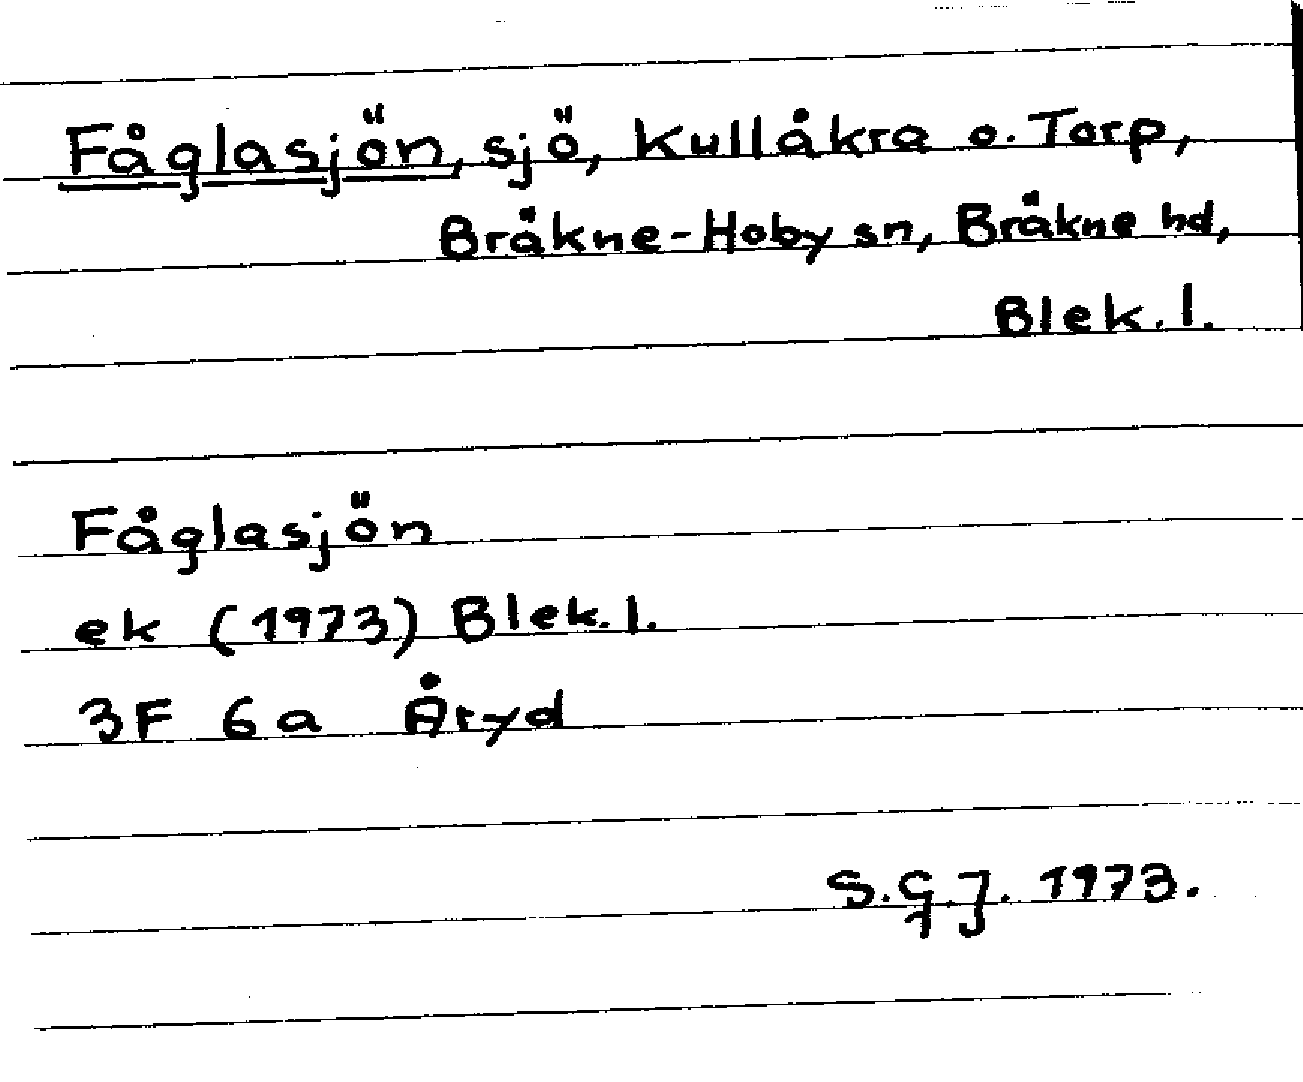 Fåglasjön, sjö, Kullåkra o. Torp,
Bråkne-Hoby sn, Bråkne hd,
Blek. l.
Fåglasjön
ek (1973) Blek. l.
3F 6a Åryd
S.G.J. 1973.